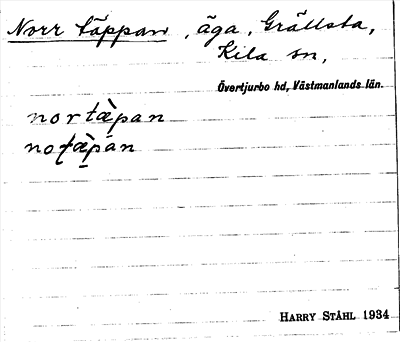 Norr täppan, äga, Grällsta,
Kila sn,
Övertjurbo hd, Västmanlands län.
nortæ̀pan
notæ̀pan
HARRY STÅHL 1934